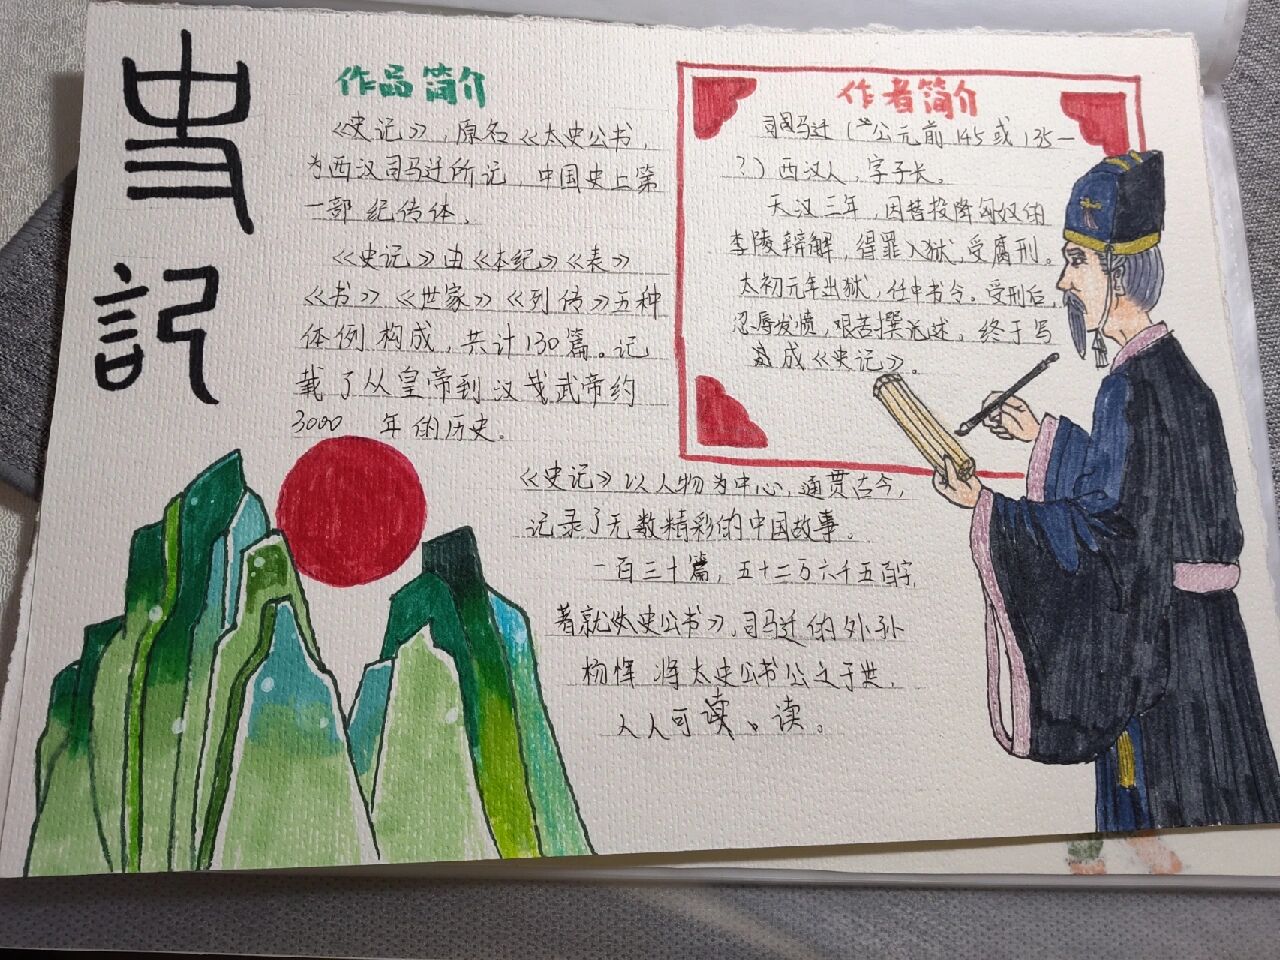 史記
作品简介
《史记》，原名《太史公书，
为西汉司马迁所记，中国史上第
一部 纪传体。
《史记》由《本纪》《表》
《书》《世家》《列传》五种
体例 构成，共计130篇。记
载了从皇帝到汉 武帝约
3000 年的历史。
作者简介
司马迁（公元前145或135—
？）西汉人，字子长。
天汉三年，因替投降匈奴的
李陵辩解，得罪入狱，受腐刑。
太初元年出狱，任中书令。受刑后，
忍辱发愤，艰苦撰述，终于写
成《史记》。
《史记》以人物为中心，通贯古今，
记录了无数精彩的中国故事。
一百三十篇，五十二万六千五百字，
著就《太史公书》，司马迁的外孙
杨恽 将太史公书公之于世，
人人可读。读。